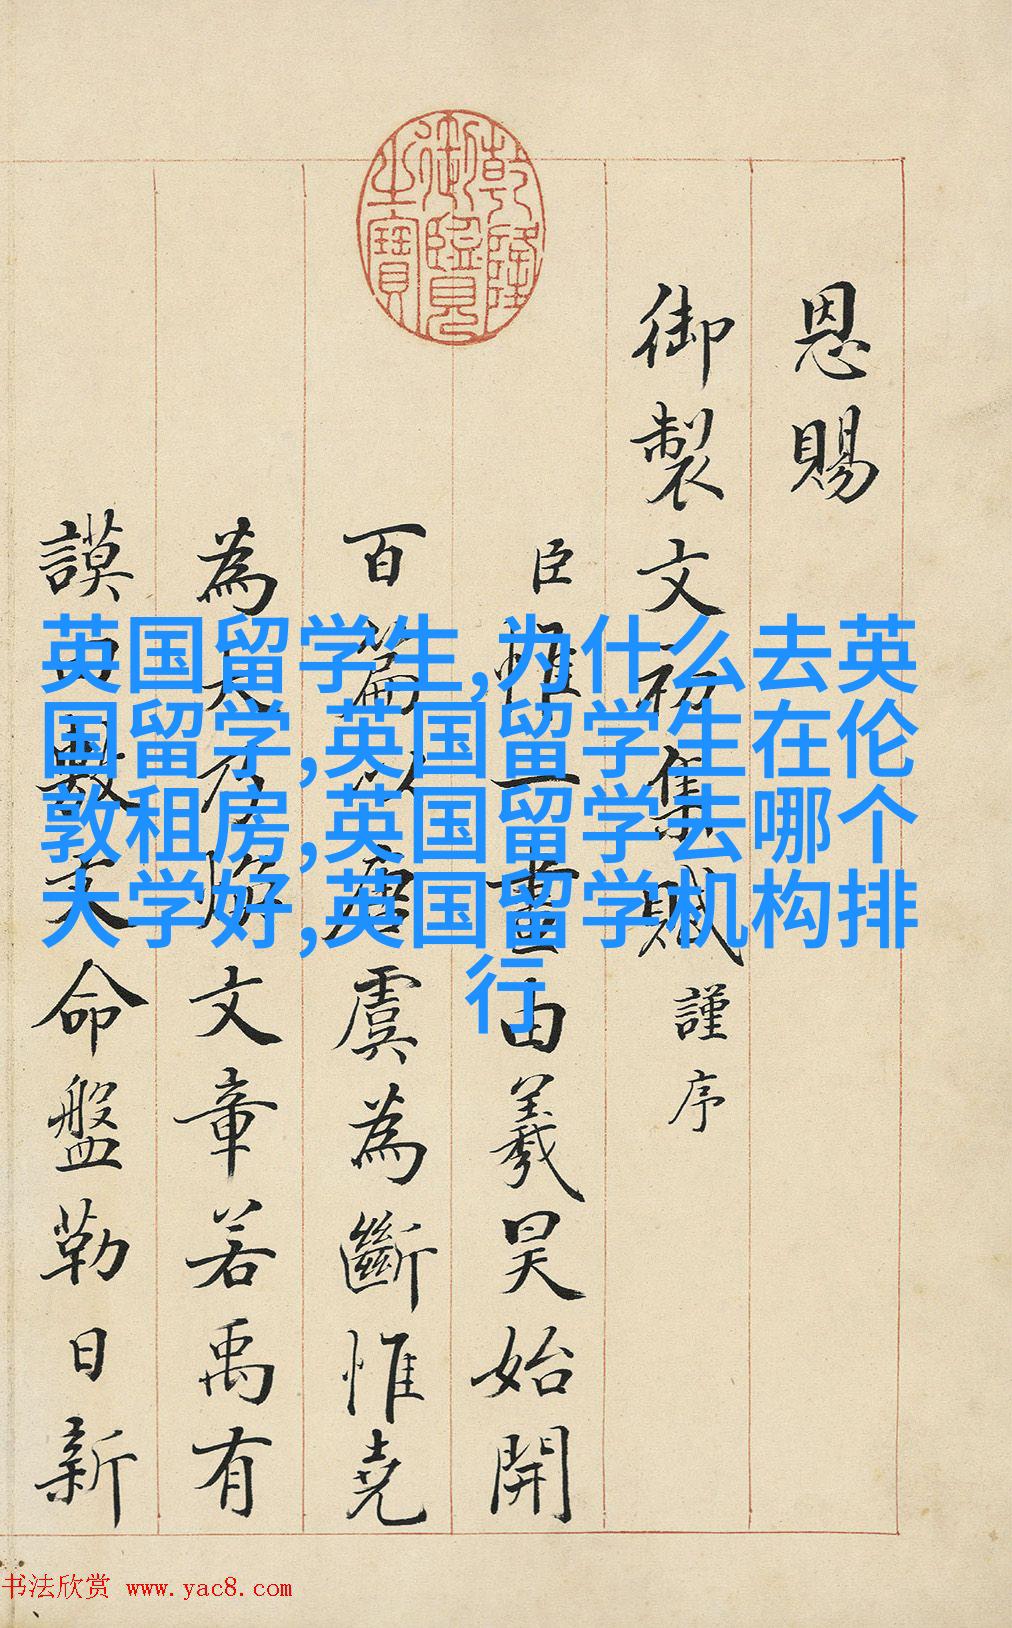 乾隆御覽之寶
恩賜
御製文初集賦謹序
臣惟一畫由羲昊始開
百篇以唐虞為斷惟堯
為大乃煥文章若禹有
謨曰敷文命盤勒日新
英国留学生,为什么去英
国留学,英国留学生在伦
敦租房,英国留学去哪个
大学好,英国留学机构排
行
书法欣赏 www.yac8.com